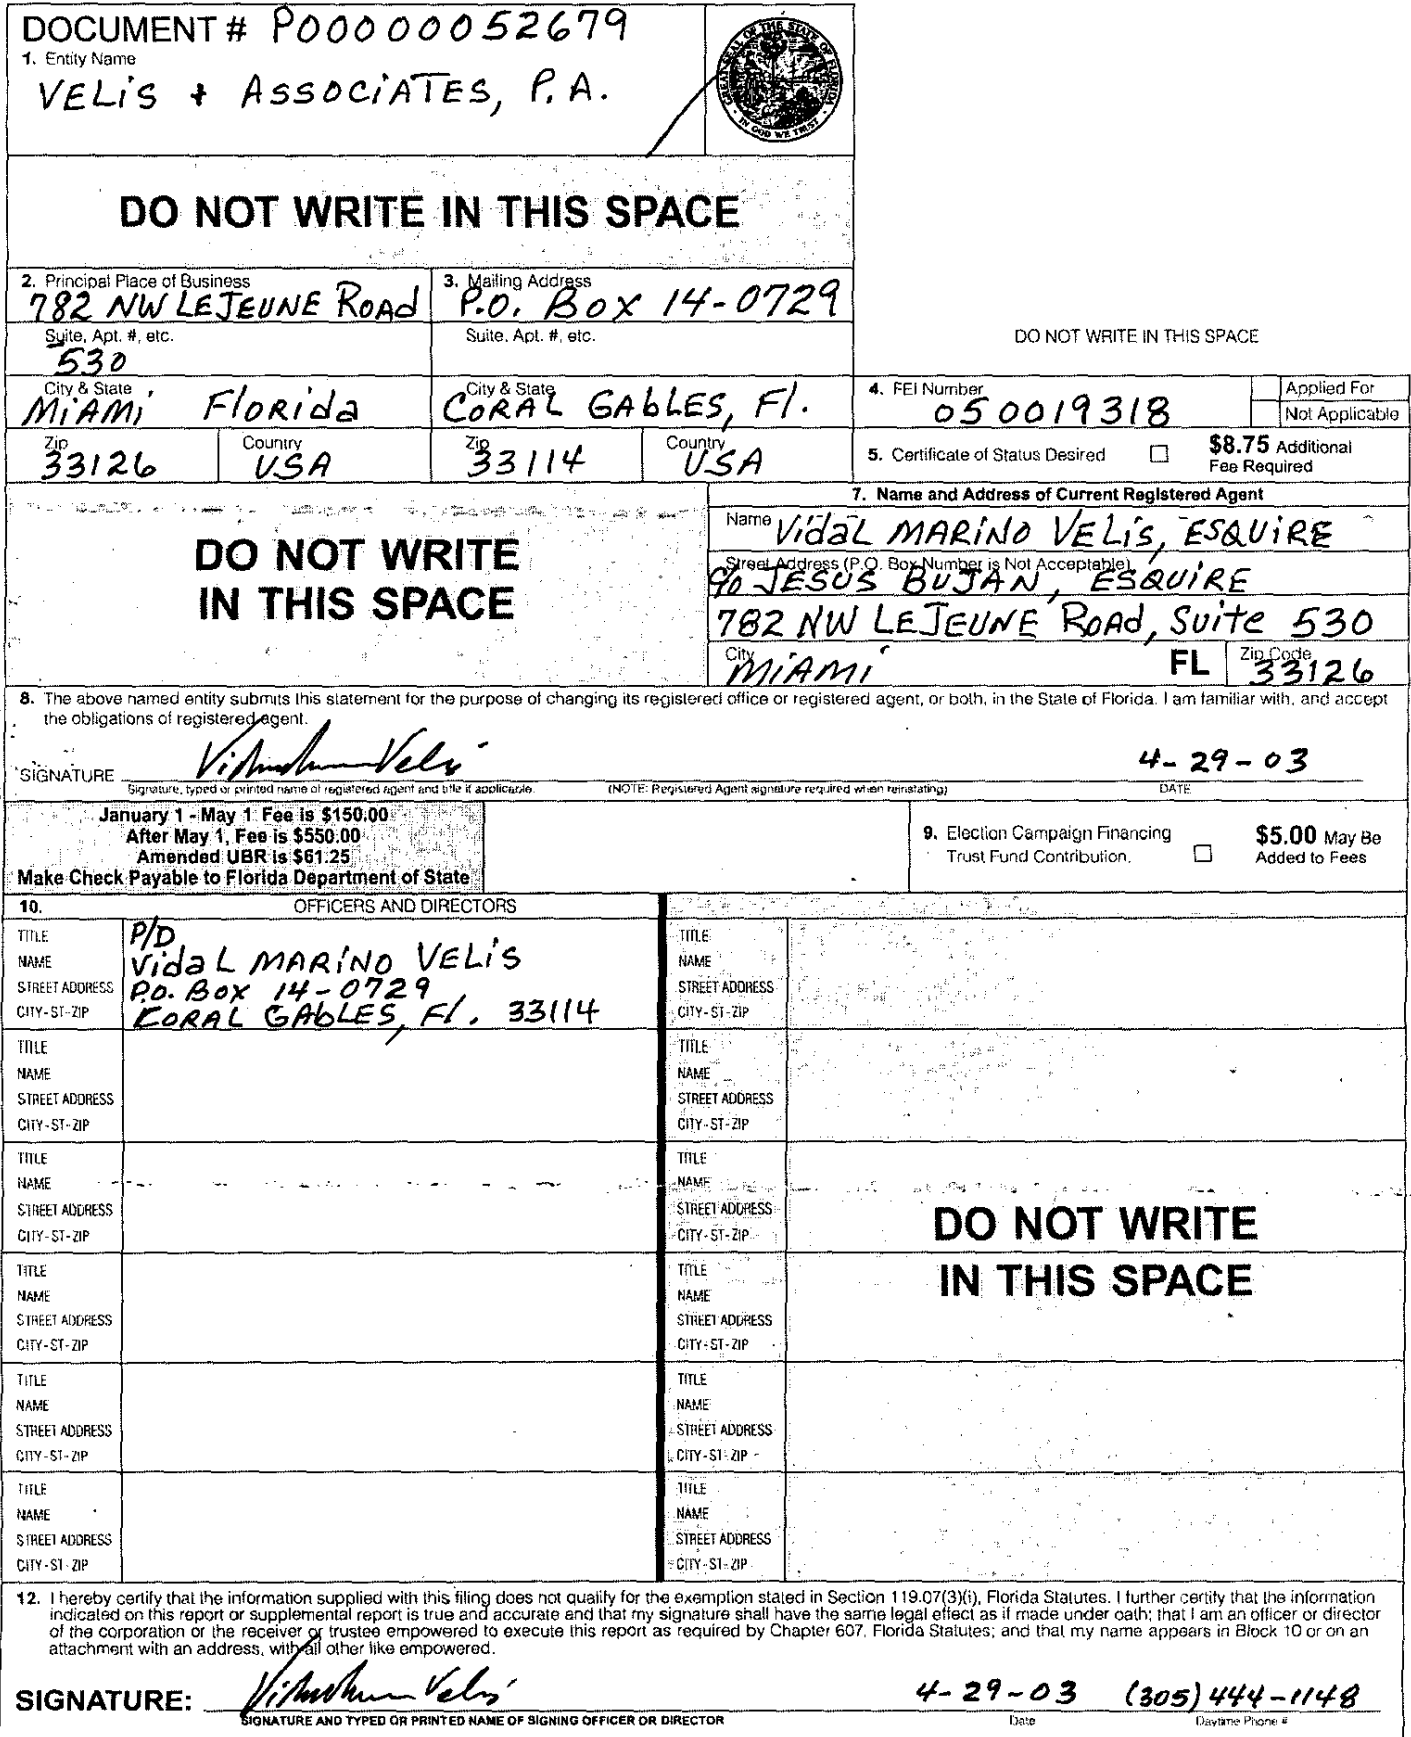 DOCUMENT # P00000052679
1. Entity Name
VELiS + ASSOCiATES, P.A.
GREAT SEAL OF THE STATE OF FLORIDA
IN GOD WE TRUST
DO NOT WRITE IN THIS SPACE
2. Principal Place of Business
782 NW LEJEUNE ROAd
3. Mailing Address
P.O. BOX 14-0729
Suite, Apt. #, etc.
530
Suite, Apt. #, etc.
DO NOT WRITE IN THIS SPACE
City & State
MiAMi FloRida
City & State
CORAL GAbLES, Fl.
4. FEI Number
050019318
Applied For
Not Applicable
Zip
33126
Country
USA
Zip
33114
Country
USA
5. Certificate of Status Desired
$8.75 Additional
Fee Required
DO NOT WRITE
IN THIS SPACE
7. Name and Address of Current Registered Agent
Name VidaL MARiNO VELiS, ESQUiRE
Street Address (P.O. Box Number is Not Acceptable)
c/o JESUS BUJAN, ESQUiRE
782 NW LEJEUNE ROAd, Suite 530
City
MiAMi
FL
Zip Code
33126
8. The above named entity submits this statement for the purpose of changing its registered office or registered agent, or both, in the State of Florida. I am familiar with, and accept
the obligations of registered agent.
SIGNATURE
4-29-03
Signature, typed or printed name of registered agent and title if applicable.
(NOTE: Registered Agent signature required when reinstating)
DATE
January 1 - May 1 Fee is $150.00
After May 1, Fee is $550.00
Amended UBR is $61.25
Make Check Payable to Florida Department of State
9. Election Campaign Financing
Trust Fund Contribution.
$5.00 May Be
Added to Fees
10. OFFICERS AND DIRECTORS
TITLE P/D
NAME VidaL MARiNO VELiS
STREET ADDRESS P.O. BOX 14-0729
CITY-ST-ZIP CORAL GAbLES, Fl. 33114
TITLE
NAME
STREET ADDRESS
CITY-ST-ZIP
TITLE
NAME
STREET ADDRESS
CITY-ST-ZIP
TITLE
NAME
STREET ADDRESS
CITY-ST-ZIP
TITLE
NAME
STREET ADDRESS
CITY-ST-ZIP
TITLE
NAME
STREET ADDRESS
CITY-ST-ZIP
TITLE
NAME
STREET ADDRESS
CITY-ST-ZIP
TITLE
NAME
STREET ADDRESS
CITY-ST-ZIP
TITLE
NAME
STREET ADDRESS
CITY-ST-ZIP
TITLE
NAME
STREET ADDRESS
CITY-ST-ZIP
TITLE
NAME
STREET ADDRESS
CITY-ST-ZIP
TITLE
NAME
STREET ADDRESS
CITY-ST-ZIP
DO NOT WRITE
IN THIS SPACE
12. I hereby certify that the information supplied with this filing does not qualify for the exemption stated in Section 119.07(3)(i), Florida Statutes. I further certify that the information
indicated on this report or supplemental report is true and accurate and that my signature shall have the same legal effect as if made under oath; that I am an officer or director
of the corporation or the receiver or trustee empowered to execute this report as required by Chapter 607, Florida Statutes; and that my name appears in Block 10 or on an
attachment with an address, with all other like empowered.
SIGNATURE:
4-29-03 (305) 444-1148
SIGNATURE AND TYPED OR PRINTED NAME OF SIGNING OFFICER OR DIRECTOR
Date
Daytime Phone #